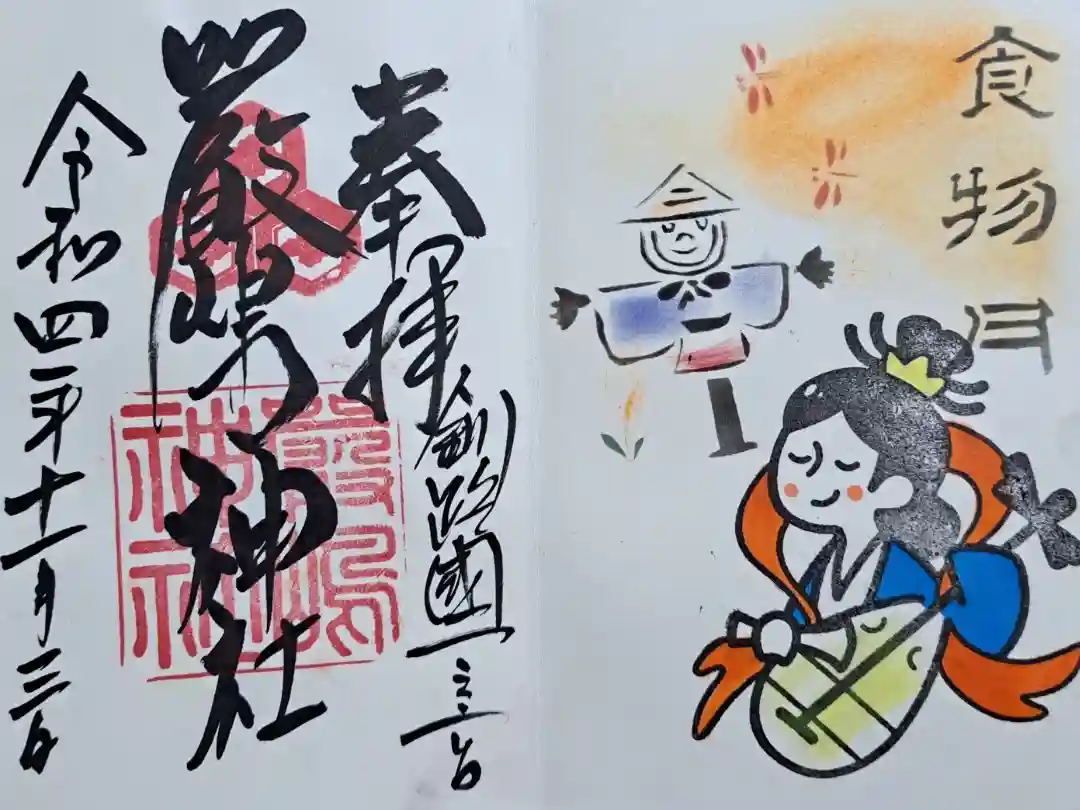 食物月
奉拝
釧路國一之宮
嚴嶋神社
嚴嶋神社
令和四年十一月三日